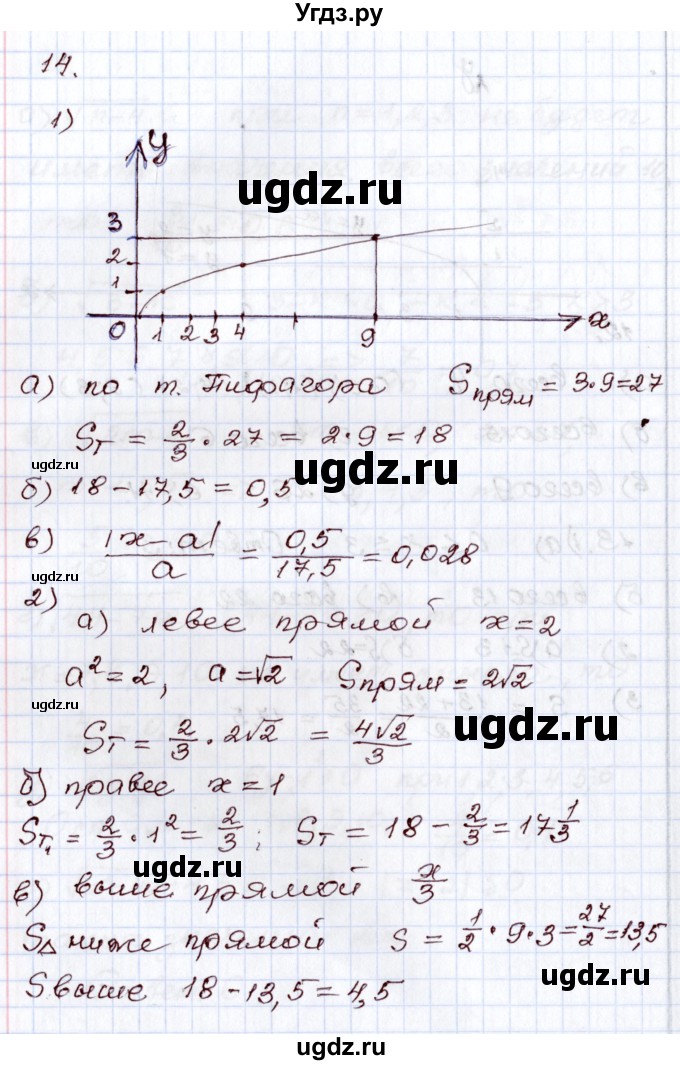 Угдз.ру
14.
1)
y
ugdz.ru
3
2
1
0 1 2 3 4 9 x
а) по т. Пифагора Sпрям = 3·9=27
Sт = 2/3 · 27 = 2·9 = 18
ugdz.ru
ugdz.ru
б) 18-17,5 = 0,5
в) |x-a|/a = 0,5/17,5 = 0,028
ugdz.ru
2)
а) левее прямой x=2
a²=2, a=√2 Sпрям = 2√2
ugdz.ru
Sт = 2/3 · 2√2 = 4√2/3
ugdz.ru
б) правее x=1
Sт₁ = 2/3 · 1² = 2/3; Sт = 18 - 2/3 = 17 1/3
ugdz.ru
в) выше прямой x/3
S△ ниже прямой S = 1/2 · 9·3 = 27/2 = 13,5
ugdz.ru
Sвыше 18-13,5=4,5
ugdz.ru